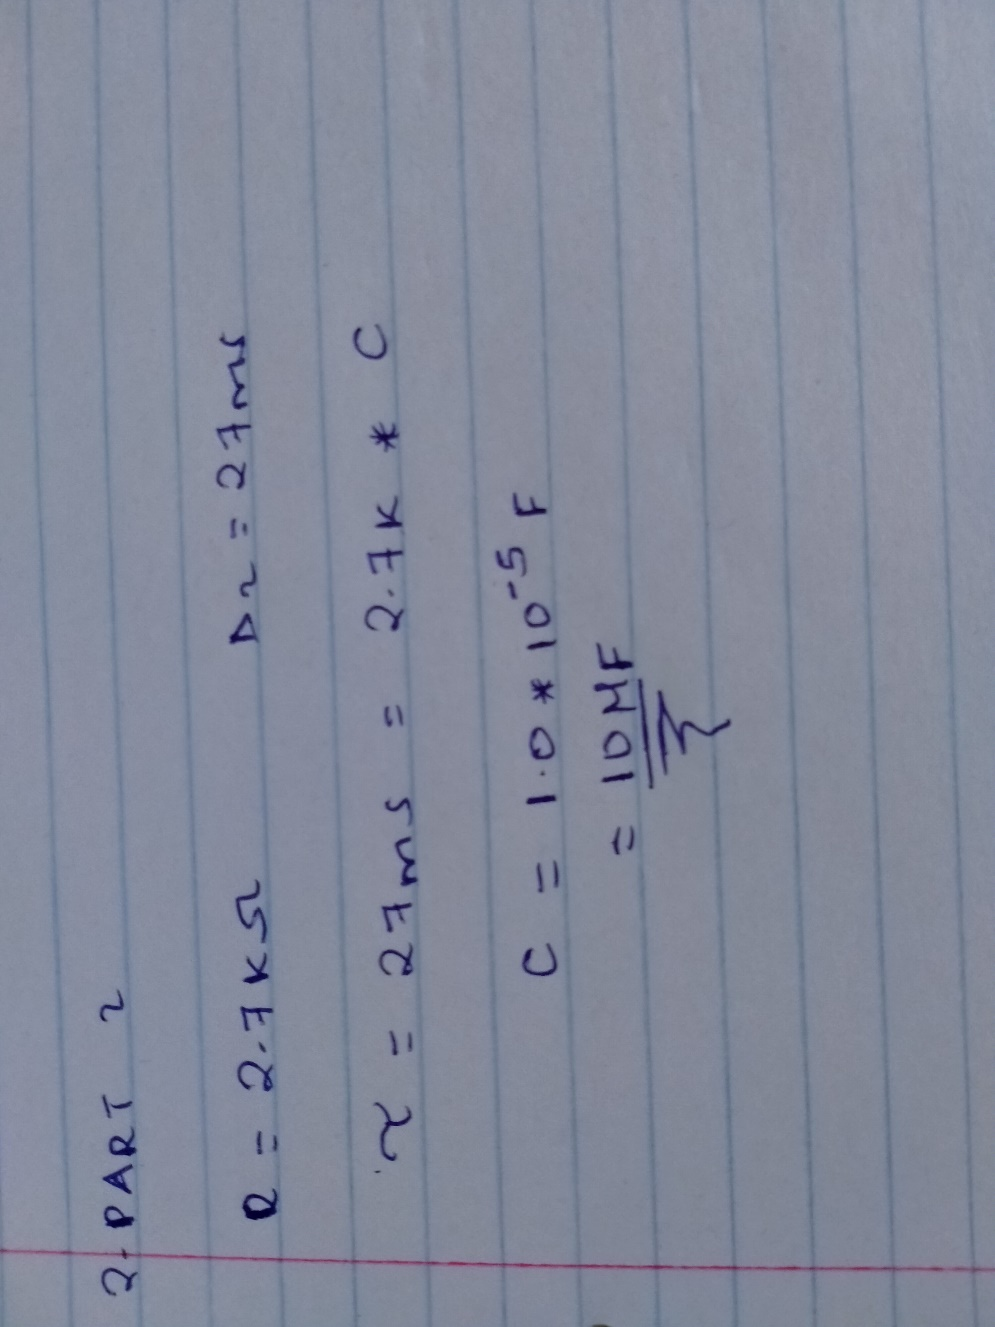 2. PART 2
R = 2.7KΩ D2 = 27ms
τ = 27ms = 2.7K * C
C = 1.0 * 10⁻⁵ F
= 10 MF